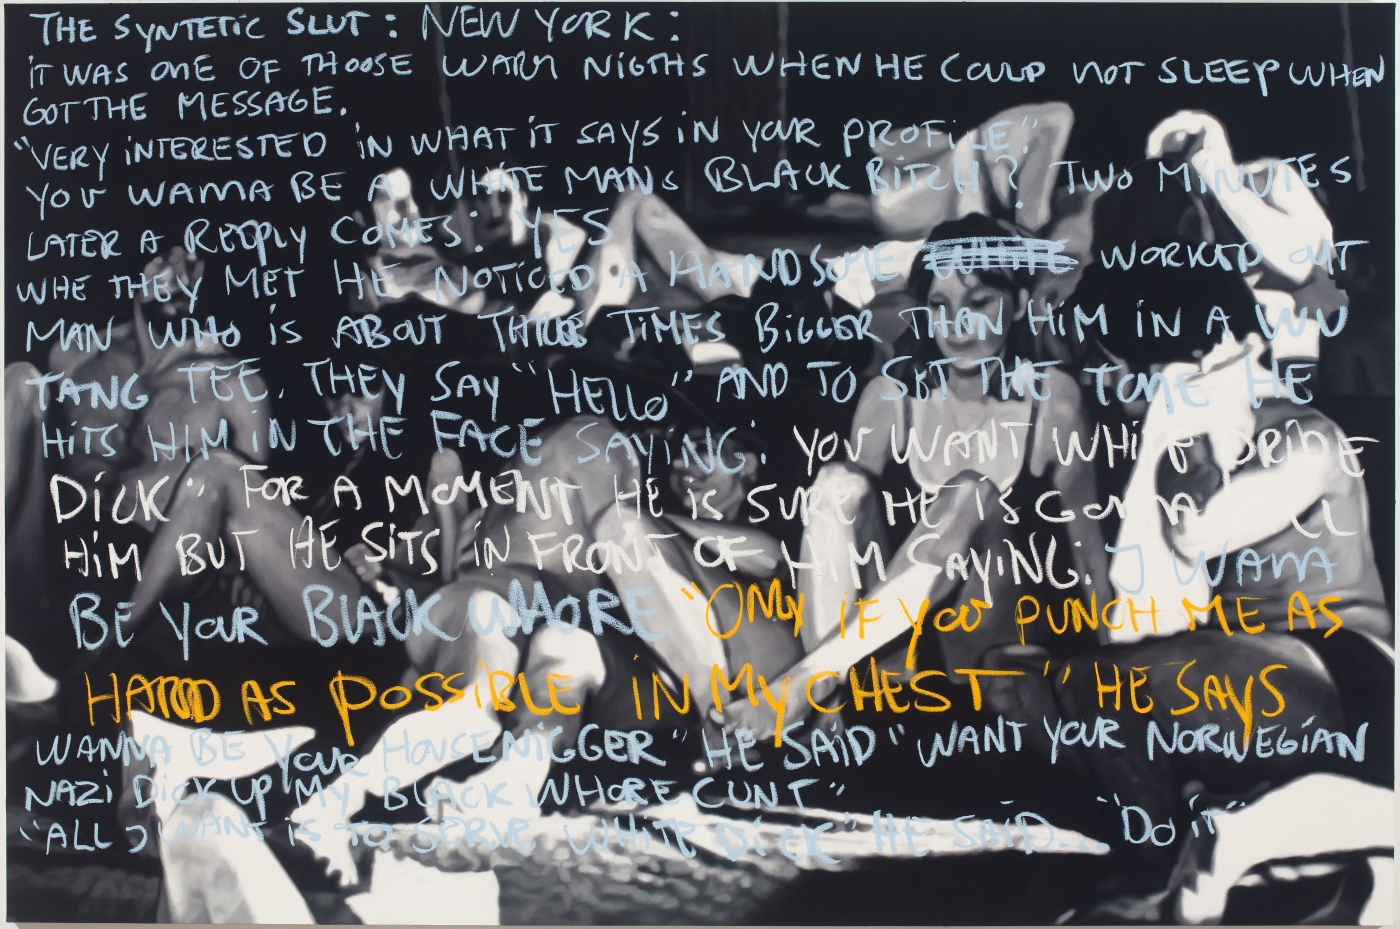 THE SYNTETIC SLUT : NEW YORK :
IT WAS ONE OF THOOSE WARM NIGTHS WHEN HE COULD NOT SLEEP WHEN
GOT THE MESSAGE.
"VERY INTERESTED IN WHAT IT SAYS IN YOUR PROFILE"
YOU WAMA BE A WHITE MANS BLACK BITCH? TWO MINUTES
LATER A REPPLY COMES: YES
WHE THEY MET HE NOTICED A HANDSOME WHITE WORKED OUT
MAN WHO IS ABOUT THREE TIMES BIGGER THAN HIM IN A WU
TANG TEE. THEY SAY "HELLO" AND TO SET THE TONE HE
HITS HIM IN THE FACE SAYING: YOU WANT WHITE PRIDE
DICK" FOR A MOMENT HE IS SURE HE IS GONNA
HIM BUT HE SITS IN FRONT OF HIM SAYING: I WANA
BE YOUR BLACK WHORE "ONLY IF YOU PUNCH ME AS
HARD AS POSSIBLE IN MY CHEST" HE SAYS
WANNA BE YOUR HOUSENIGGER" HE SAID "WANT YOUR NORWEGIAN
NAZI DICK UP MY BLACK WHORE CUNT"
"ALL I WANT IS TO SERVE WHITE DICK" HE SAID... "DO IT"